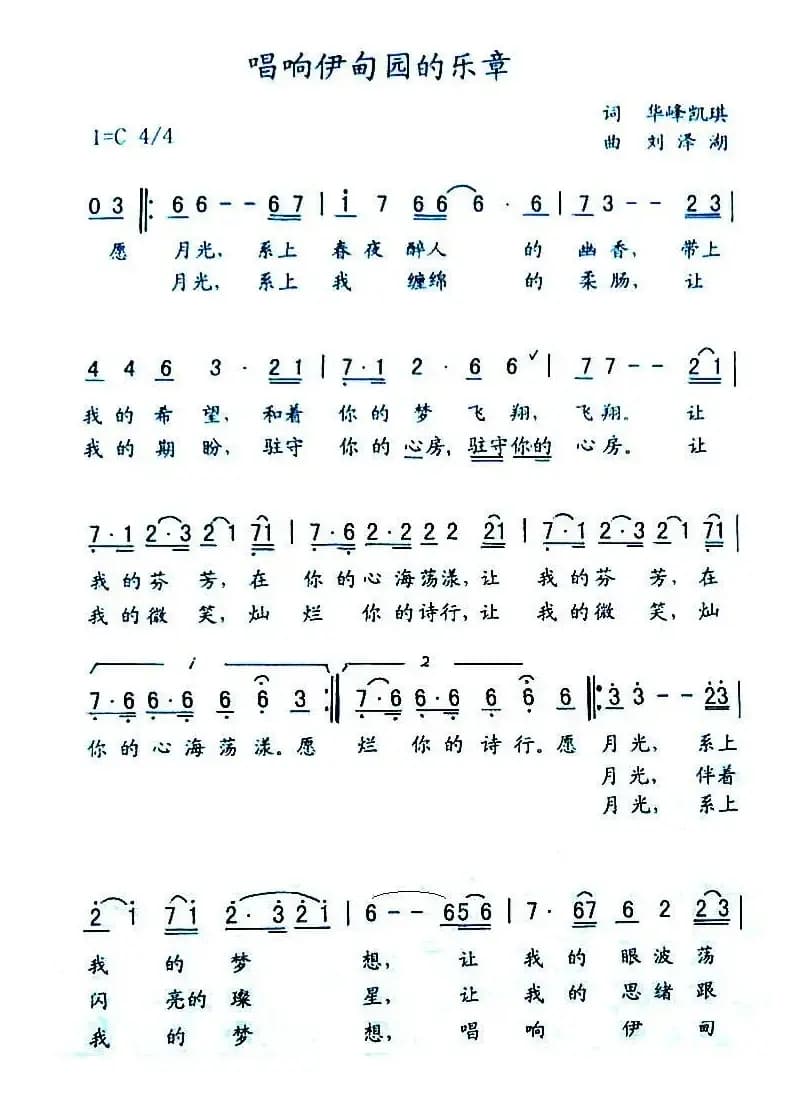 唱响伊甸园的乐章
词 华峰凯琪
1=C 4/4
曲 刘泽湖
0 3 ‖: 6 6 - - 6 7 | i 7 6 6 6 · 6 | 7 3 - - 2 3 |
愿 月光, 系上 春夜 醉人 的 幽香, 带上
月光, 系上 我 缠绵 的 柔肠, 让
4 4 6 3 · 2 1 | 7 · 1 2 · 6 6 ∨ | 7 7 - - 2 1 |
我的 希望, 和着 你的 梦 飞翔, 飞翔。 让
我的 期盼, 驻守 你的 心房, 驻守你的 心房。 让
7 · 1 2 · 3 2 1 7 1 | 7 · 6 2 · 2 2 2 2 1 | 7 · 1 2 · 3 2 1 7 1 |
我的芬芳, 在 你的心海荡漾, 让 我的芬芳, 在
我的微笑, 灿 烂 你的诗行, 让 我的微笑, 灿
1 2
7 · 6 6 · 6 6 6 3 :‖ 7 · 6 6 · 6 6 6 6 ‖: 3 3 - - 2 3
你的心海荡漾。愿 烂 你的诗行。愿 月光, 系上
月光, 伴着
月光, 系上
2 i 7 i 2 · 3 2 i | 6 - - 6 5 6 | 7 · 6 7 6 2 2 3 |
我 的 梦 想, 让 我 的 眼波荡
闪 亮的 璨 星, 让 我 的 思绪跟
我 的 梦 想, 唱 响 伊 甸